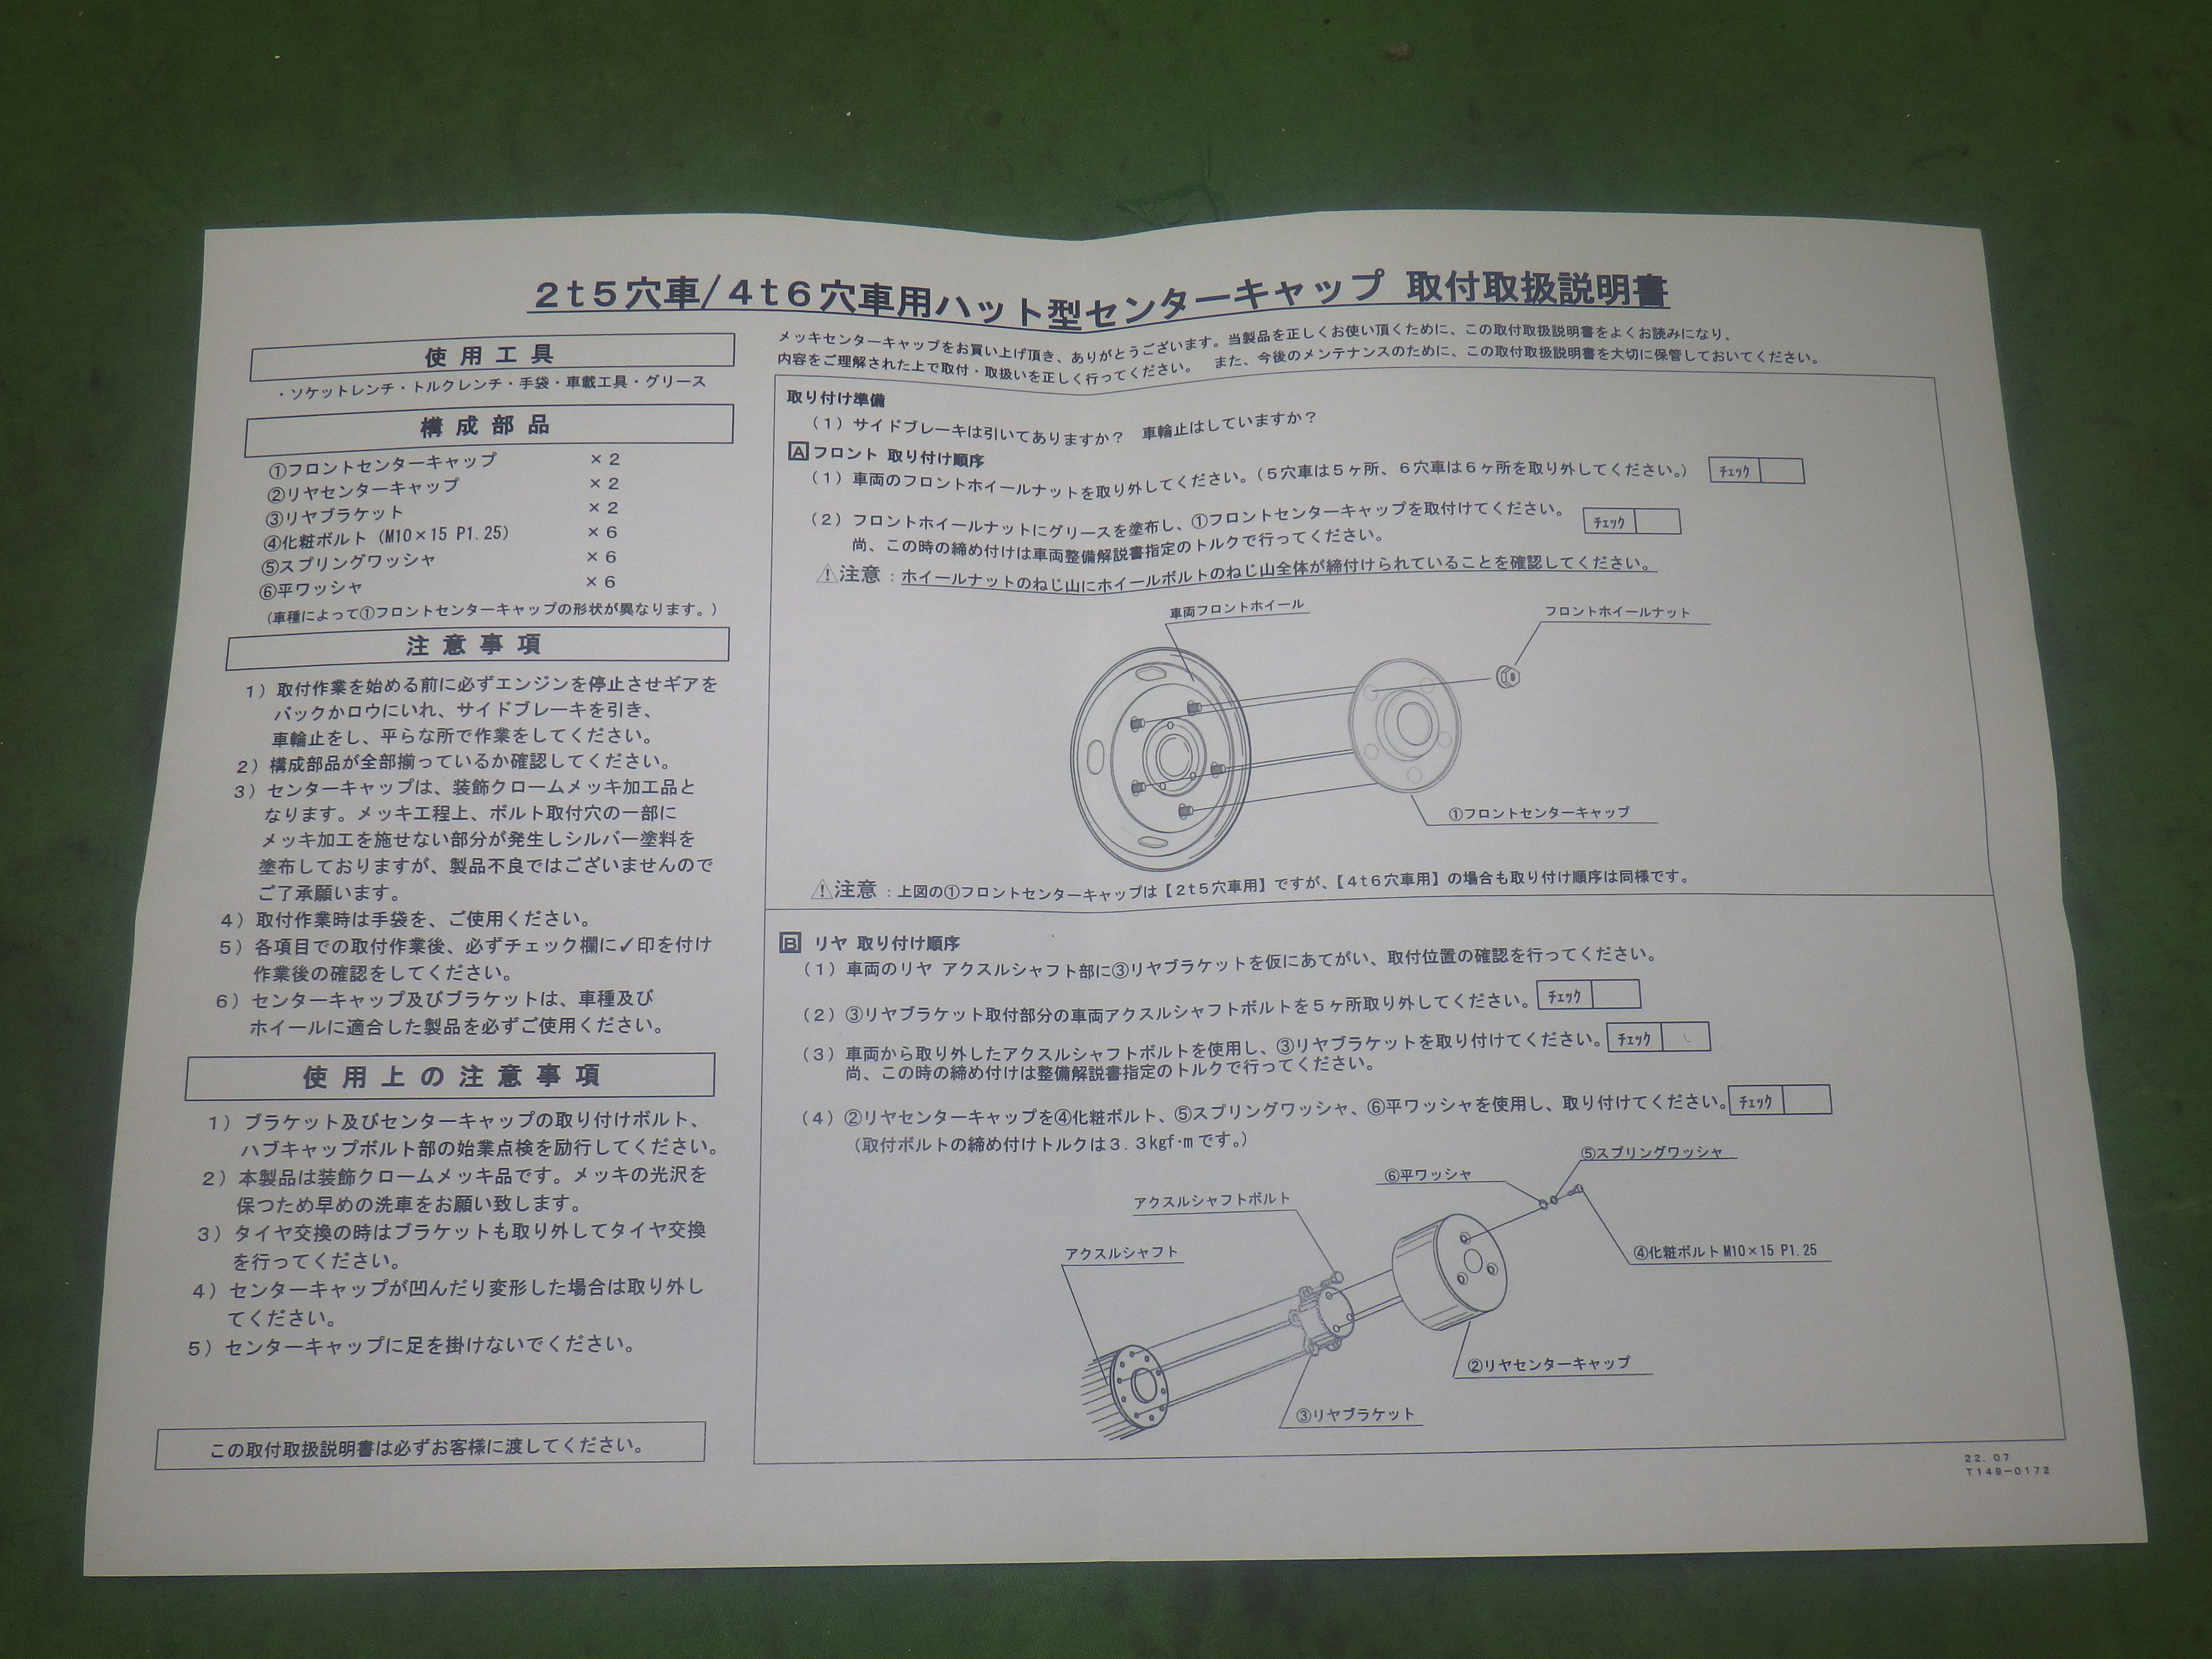 2t5穴車/4t6穴車用ハット型センターキャップ 取付取扱説明書
使用工具
・ソケットレンチ・トルクレンチ・手袋・車載工具・グリース
構成部品
①フロントセンターキャップ ×2
②リヤセンターキャップ ×2
③リヤブラケット ×2
④化粧ボルト (M10×15 P1.25) ×6
⑤スプリングワッシャ ×6
⑥平ワッシャ ×6
(車種によって①フロントセンターキャップの形状が異なります。)
注意事項
1)取付作業を始める前に必ずエンジンを停止させギアを
バックかロウにいれ、サイドブレーキを引き、
車輪止をし、平らな所で作業をしてください。
2)構成部品が全部揃っているか確認してください。
3)センターキャップは、装飾クロームメッキ加工品と
なります。メッキ工程上、ボルト取付穴の一部に
メッキ加工を施せない部分が発生しシルバー塗料を
塗布しておりますが、製品不良ではございませんので
ご了承願います。
4)取付作業時は手袋を、ご使用ください。
5)各項目での取付作業後、必ずチェック欄に✓印を付け
作業後の確認をしてください。
6)センターキャップ及びブラケットは、車種及び
ホイールに適合した製品を必ずご使用ください。
使用上の注意事項
1)ブラケット及びセンターキャップの取り付けボルト、
ハブキャップボルト部の始業点検を励行してください。
2)本製品は装飾クロームメッキ品です。メッキの光沢を
保つため早めの洗車をお願い致します。
3)タイヤ交換の時はブラケットも取り外してタイヤ交換
を行ってください。
4)センターキャップが凹んだり変形した場合は取り外し
てください。
5)センターキャップに足を掛けないでください。
この取付取扱説明書は必ずお客様に渡してください。
メッキセンターキャップをお買い上げ頂き、ありがとうございます。当製品を正しくお使い頂くために、この取付取扱説明書をよくお読みになり、
内容をご理解された上で取付・取扱いを正しく行ってください。 また、今後のメンテナンスのために、この取付取扱説明書を大切に保管しておいてください。
取り付け準備
(1)サイドブレーキは引いてありますか? 車輪止はしていますか?
A フロント 取り付け順序
(1)車両のフロントホイールナットを取り外してください。(5穴車は5ヶ所、6穴車は6ヶ所を取り外してください。) チェック
(2)フロントホイールナットにグリースを塗布し、①フロントセンターキャップを取付けてください。 チェック
尚、この時の締め付けは車両整備解説書指定のトルクで行ってください。
⚠注意:ホイールナットのねじ山にホイールボルトのねじ山全体が締付けられていることを確認してください。
車両フロントホイール
フロントホイールナット
①フロントセンターキャップ
⚠注意:上図の①フロントセンターキャップは【2t5穴車用】ですが、【4t6穴車用】の場合も取り付け順序は同様です。
B リヤ 取り付け順序
(1)車両のリヤ アクスルシャフト部に③リヤブラケットを仮にあてがい、取付位置の確認を行ってください。
(2)③リヤブラケット取付部分の車両アクスルシャフトボルトを5ヶ所取り外してください。 チェック
(3)車両から取り外したアクスルシャフトボルトを使用し、③リヤブラケットを取り付けてください。 チェック
尚、この時の締め付けは整備解説書指定のトルクで行ってください。
(4)②リヤセンターキャップを④化粧ボルト、⑤スプリングワッシャ、⑥平ワッシャを使用し、取り付けてください。 チェック
(取付ボルトの締め付けトルクは3.3kgf·mです。)
⑤スプリングワッシャ
⑥平ワッシャ
アクスルシャフトボルト
アクスルシャフト
④化粧ボルト M10×15 P1.25
②リヤセンターキャップ
③リヤブラケット
22.07
T149-0172